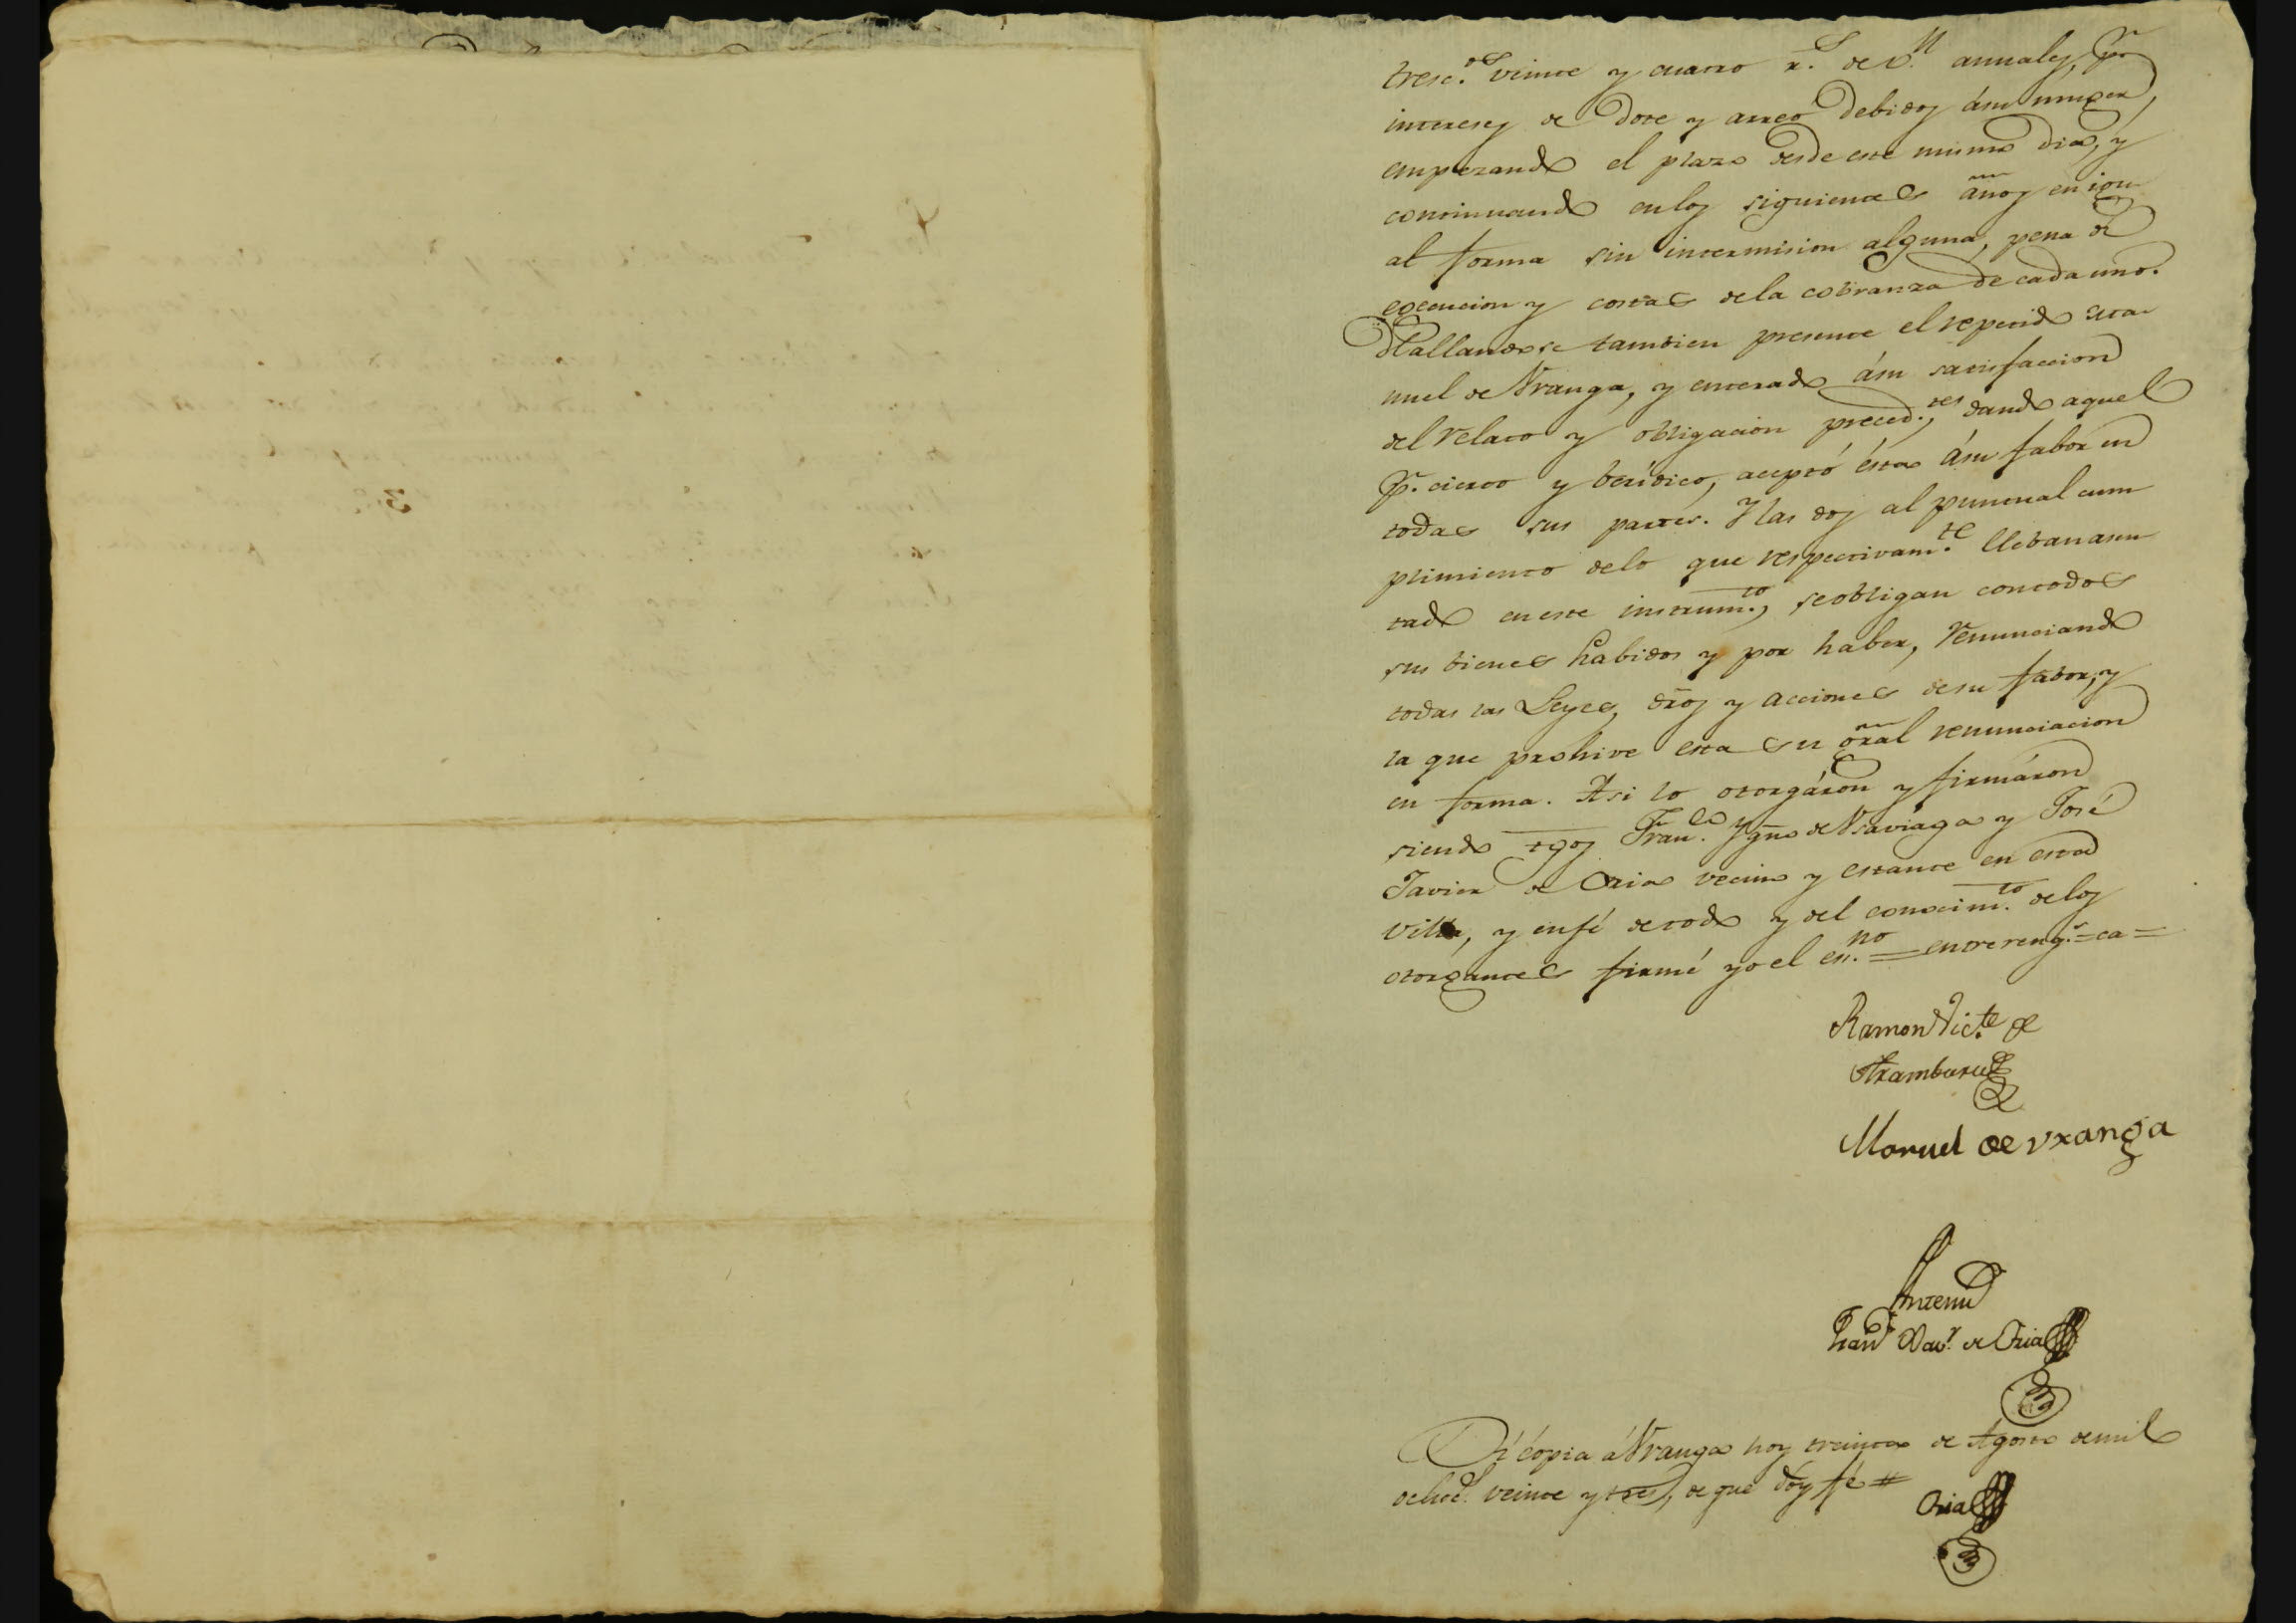 tresc.os veinte y cuatro r.s de v.n annales, p.r
intereses de Dote y arreo Debidos ásu muger,
empezando el plazo desde este mismo Dia, y
continuando enlos siguientes añoz en igu
al forma sin intermision alguna, pena de
egecucion y costas dela cobranza de cada uno.
Hallandose tambien presente el repetido Ma
nuel de Vranga, y enterado ásu satisfaccion
del relato y obligacion preced.tes, dando aquel
p.r cierto y beridico, aceptó ésta ásu fabor en
todas sus partes. Y las dos al puntual cum
plimiento delo que respectivam.te lleban asen
tado eneste instrum.to, seobligan contodos
sus bienes habidos y por haber, renunciando
todas las Leyes, dr̃os y acciones desu fabor, y
la que prohive esta su gr̃al renunciacion
en forma. Asi lo otorgáron y firmáron
siendo tgos Fran.co Ygn.o de Vsaviaga y José
Javier de Oria vecino y estante en esta
villa, y enfé detodo y del conocim.to delos
otorgantes firmé yo el es.no = entrereng.s = ca =
Ramon Vic.te de
Aramburu
Manuel de vranga
Antemi
Fran.co Xav.r de Oria
Di cópia á Vranga hoy treinta de Agosto demil
ochoc.s veinte y tres, de que dóy fé #
Oria